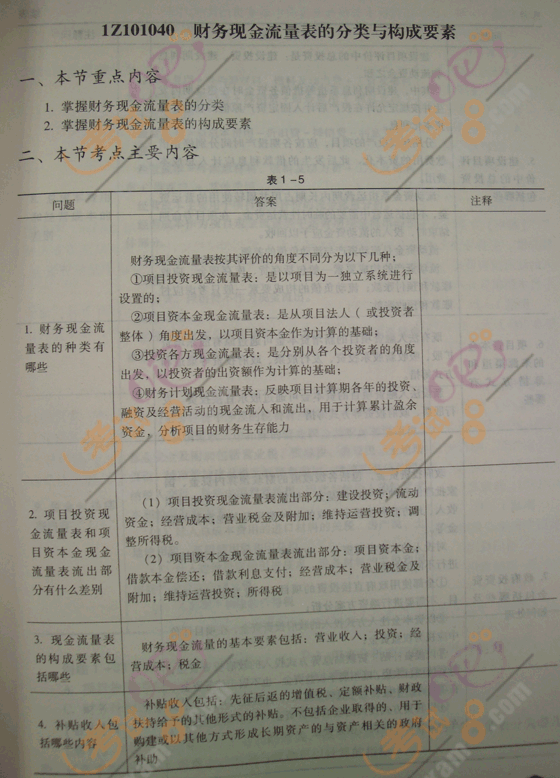 1Z101040 财务现金流量表的分类与构成要素
一、本节重点内容
1. 掌握财务现金流量表的分类
2. 掌握财务现金流量表的构成要素
二、本节考点主要内容
表 1-5
问题 答案 注释
1. 财务现金流
量表的种类有
哪些
财务现金流量表按其评价的角度不同分为以下几种；
①项目投资现金流量表：是以项目为一独立系统进行
设置的；
②项目资本金现金流量表：是从项目法人（或投资者
整体）角度出发，以项目资本金作为计算的基础；
③投资各方现金流量表：是分别从各个投资者的角度
出发，以投资者的出资额作为计算的基础；
④财务计划现金流量表：反映项目计算期各年的投资、
融资及经营活动的现金流入和流出，用于计算累计盈余
资金，分析项目的财务生存能力
2. 项目投资现
金流量表和项
目资本金现金
流量表流出部
分有什么差别
（1）项目投资现金流量表流出部分：建设投资；流动
资金；经营成本；营业税金及附加；维持运营投资；调
整所得税。
（2）项目资本金现金流量表流出部分：项目资本金；
借款本金偿还；借款利息支付；经营成本；营业税金及
附加；维持运营投资；所得税
3. 现金流量表
的构成要素包
括哪些
财务现金流量的基本要素包括：营业收入；投资；经
营成本；税金
4. 补贴收入包
括哪些内容
补贴收入包括：先征后返的增值税、定额补贴、财政
扶持给予的其他形式的补贴。不包括企业取得的、用于
购建或以其他方式形成长期资产的与资产相关的政府
补助